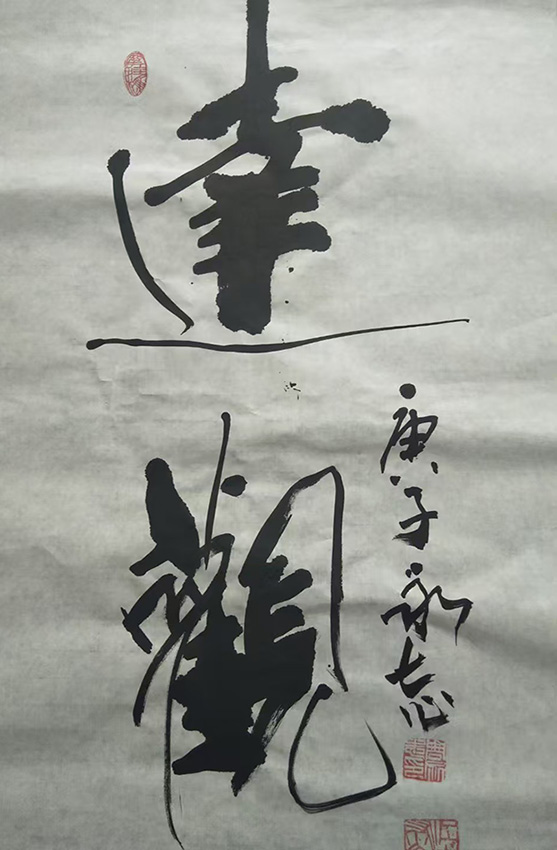 達觀
庚子永志